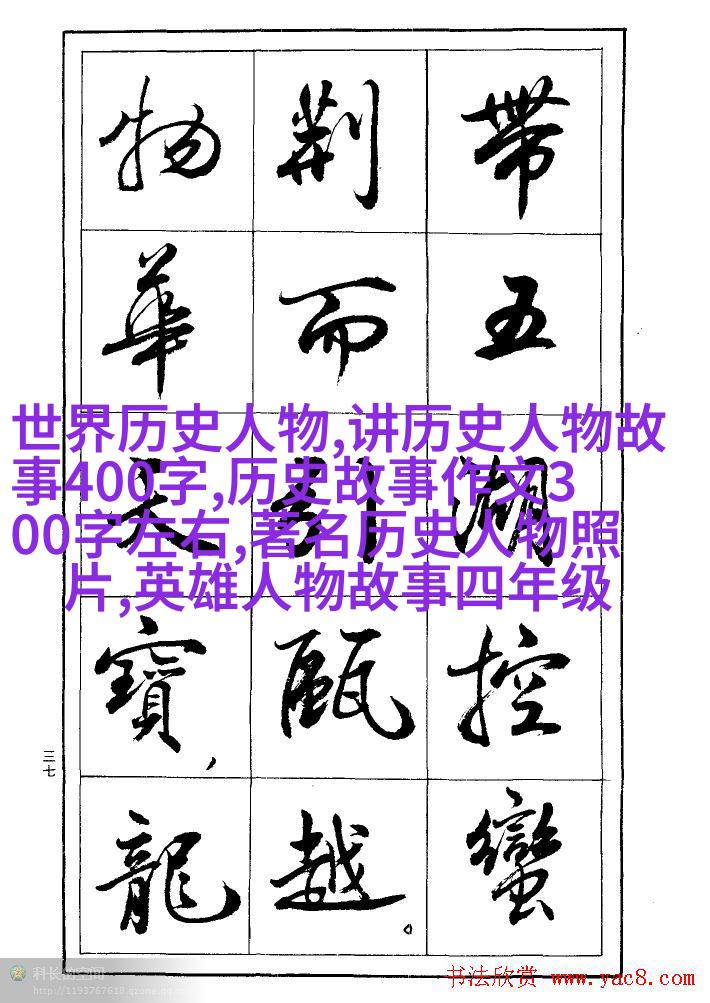 帶五湖控蠻
荊而引甌越。
物華天寶,龍
世界历史人物,讲历史人物故
事400字,历史故事作文3
00字左右,著名历史人物照
片,英雄人物故事四年级
三七
科长的空间
书法欣赏 www.yac8.com